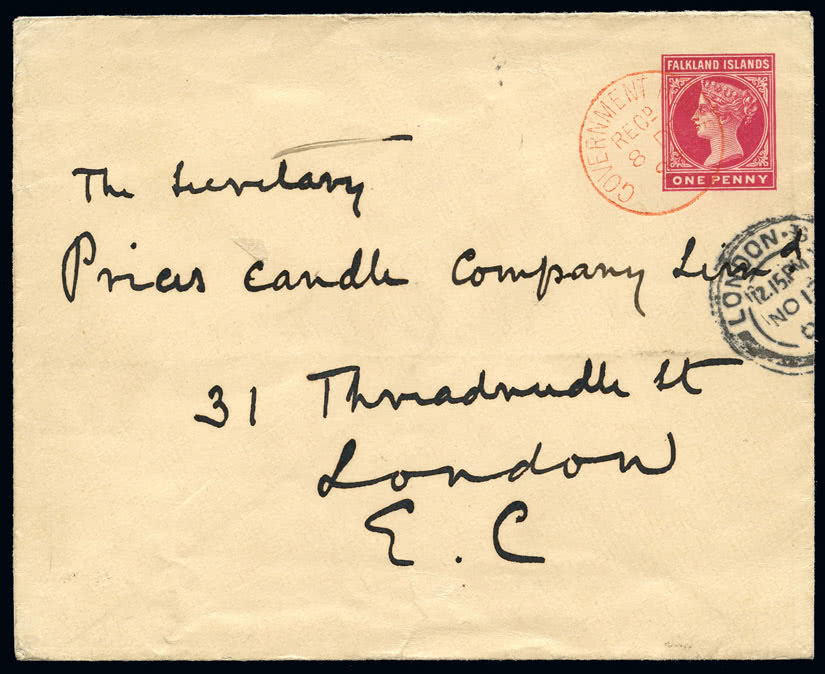 FALKLAND ISLANDS
ONE PENNY
GOVERNMENT
REC^D
8
LONDON.
12.15PM
NO 1
The Secretary
Prices Candle Company Lim^d
31 Threadneedle St
London
E. C